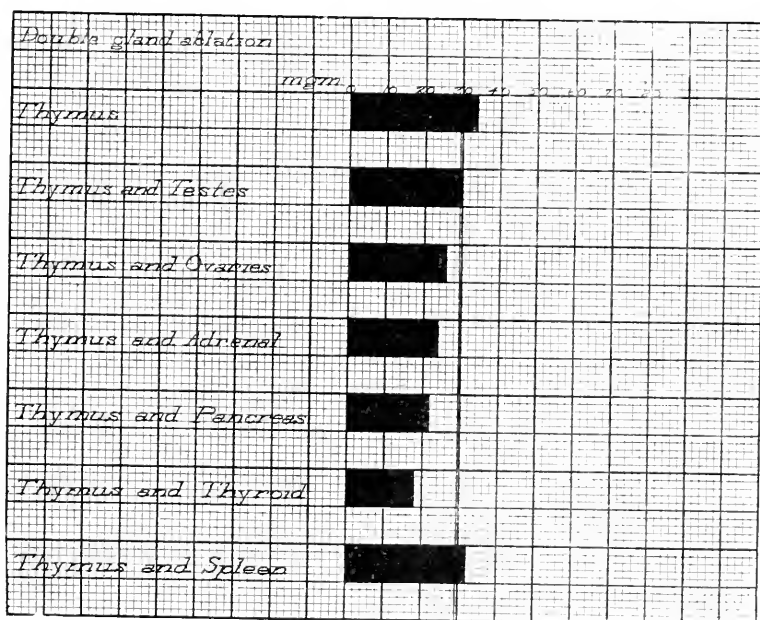 Double gland ablation
mgm 0 10 20 30 40 50 60 70
Thymus
Thymus and Testes
Thymus and Ovaries
Thymus and Adrenal
Thymus and Pancreas
Thymus and Thyroid
Thymus and Spleen